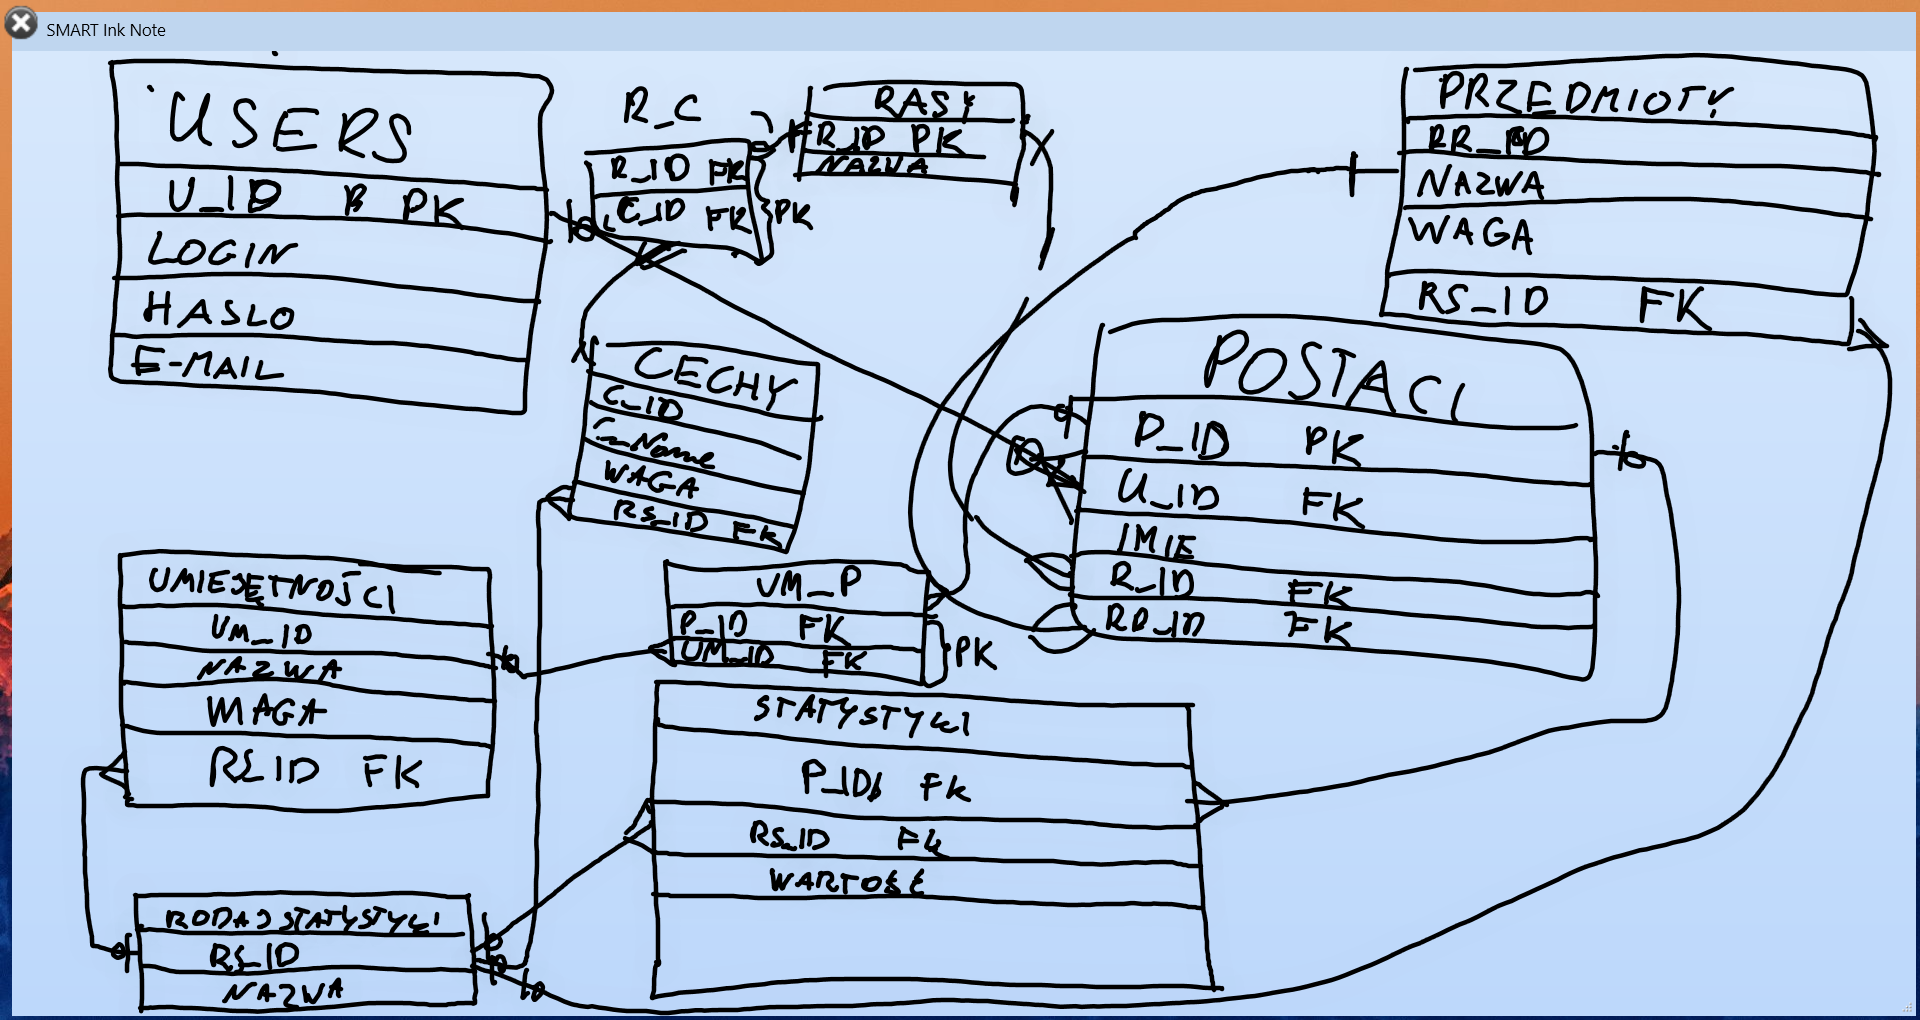 SMART Ink Note
USERS
U_ID B PK
LOGIN
HASLO
E-MAIL
R_C
R_ID FK
C_ID FK
PK
RASY
R_ID PK
NAZWA
PRZEDMIOTY
NAZWA
WAGA
RS_ID FK
CECHY
C_ID
C_Name
WAGA
RS_ID FK
POSTACI
P_ID PK
U_ID FK
IMIE
R_ID FK
FK
UMIEJĘTNOŚCI
UM_ID
NAZWA
WAGA
RS_ID FK
UM_P
P_ID FK
UM_ID FK
PK
STATYSTYKI
P_ID FK
RS_ID FK
WARTOŚĆ
RODAJSTATYSTYKI
RS_ID
NAZWA